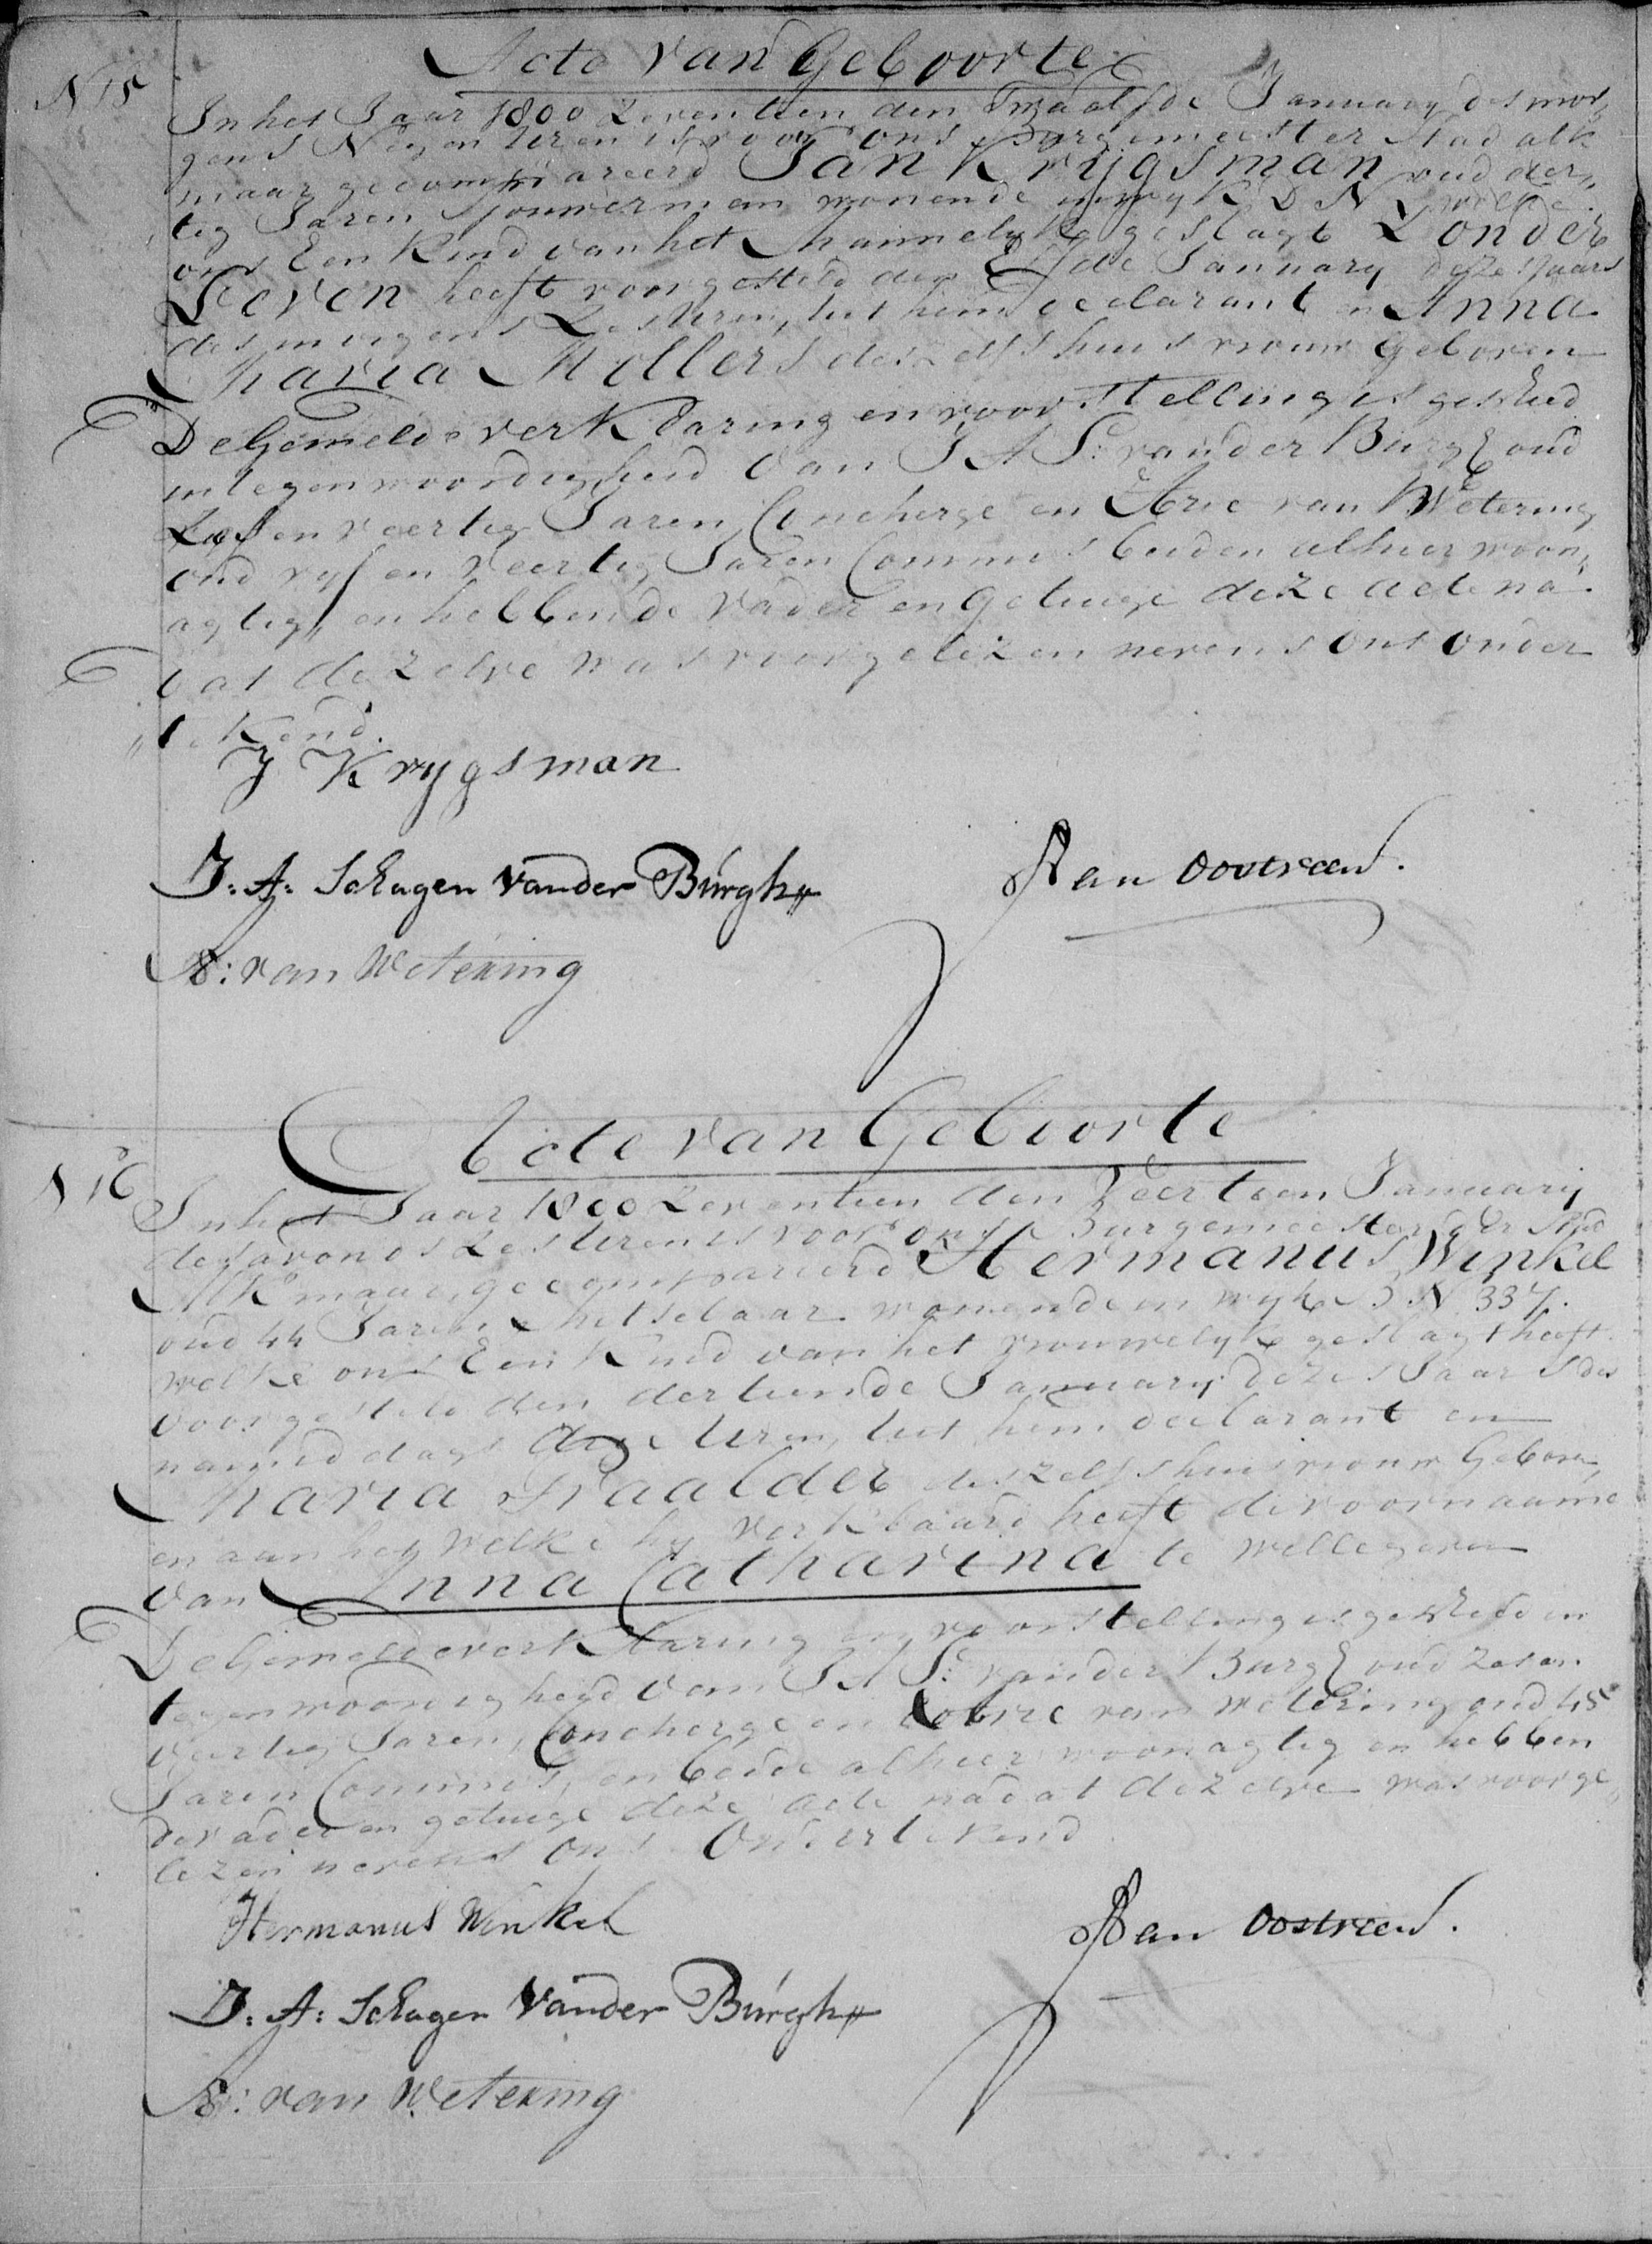 Acte van Geboorte
N 15
In het Jaar 1800 Zeventien den Twaalfde January des mor
gens Negen Uren is voor ons Burgemeester Stad alk
maar gecompareerd Jan Krijgsman oud der„
tig Jaren Sjouwerman wonende in wyk D N welke
ons Een Kind van het Mannelyke geslagt Zonder
Leven heeft voorgesteld den Elfde January dezes Jaars
des morgens Zes Uren, uit hem declarant en Anna
Maria Mollers deszelfs huisvrouw Geboren
De Gemelde verklaring en voorstelling is geschied
in tegenwoordigheid van J A S: van der Burgh oud
Zes en veertig Jaren Concherge en Arie van Wetering
oud vyf en veertig Jaren Commis beiden alhier woon„
agtig, en hebben de Vader en Getuige deze acte na
dat dezelve was voorgelezen nevens ons onder
„tekend.
J Krygsman
J: A: Schagen Vander Burgh
Van Oostveen.
A: van Wetering
Acte van Geboorte
N 16
In het Jaar 1800 Zeventien den Veertien January
des avonds Zes Uren is voor ons Burgemeester der Stad
Alkmaar, gecompareerd Hermanus Winkel
oud 44 Jaren Metselaar wonende in wyk B N 337.
welke ons Een Kind van het vrouwelyke geslagt heeft
voorgesteld den dertiende January dezes Jaars des
namiddags drie Uren, uit hem declarant en
Maria Kraalder deszelfs huisvrouw Geboren,
en aan het welke hy verklaard heeft de voornaame
van Anna Catharina te willegeven
De Gemelde verklaring en voorstelling is geschied in
tegenwoordigheyd van J A S: van der Burgh oud Zes en
veertig Jaren, Concherge en Arie van Wetering oud 45
Jaren Commis, en beide alhier woonagtig en hebben
de vader en getuige deze acte nadat dezelve was voorge„
lezen nevens ons Ondertekend
Hermanus Winkel
Van Oostveen.
J: A: Schagen Vander Burgh
A: van Wetering